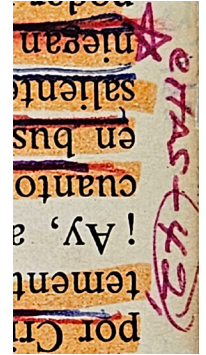 por Cri
temente
¡Ay, a
cuanto
en bus
saliente
niegan
CITAS